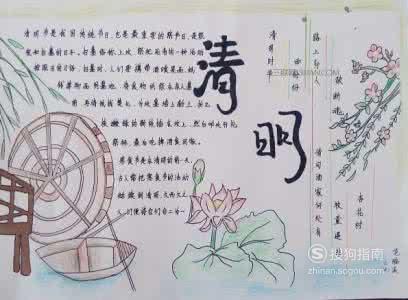 清明节是我国传统节日，也是最重要的祭节日，是祭
祖和扫墓的日子。扫墓俗称上坟，祭祀死者的一种活动
按照旧的习俗，扫墓时，人们要携带酒食果品，纸
钱等物品到墓地，将食物供祭在亲人墓
前，再将纸钱焚化，为坟墓培上新土，折几
枝嫩绿的新枝插在坟上，然后叩头行礼
祭拜，最后吃掉酒食回家。
寒食节是在清明的前一天，
古人常把寒食节的活动
延续到清明，久而久之，
人们便将
清明
清明时
雨纷纷
路上行人
欲断魂
借问酒家何处有
牧童遥
杏花村
搜狗指南
zhinan.sogou.com